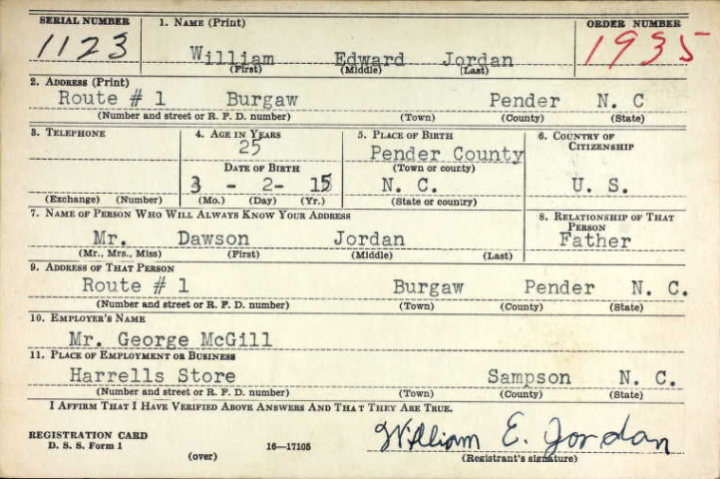 SERIAL NUMBER 1. NAME (Print) ORDER NUMBER
1123 William Edward Jordan 1935
(First) (Middle) (Last)
2. ADDRESS (Print)
Route # 1 Burgaw Pender N. C
(Number and street or R. F. D. number) (Town) (County) (State)
3. TELEPHONE 4. AGE IN YEARS 5. PLACE OF BIRTH 6. COUNTRY OF CITIZENSHIP
25 Pender County
DATE OF BIRTH (Town or county)
3 - 2- 15 N. C. U. S.
(Exchange) (Number) (Mo.) (Day) (Yr.) (State or country)
7. NAME OF PERSON WHO WILL ALWAYS KNOW YOUR ADDRESS 8. RELATIONSHIP OF THAT PERSON
Mr. Dawson Jordan Father
(Mr., Mrs., Miss) (First) (Middle) (Last)
9. ADDRESS OF THAT PERSON
Route # 1 Burgaw Pender N. C.
(Number and street or R. F. D. number) (Town) (County) (State)
10. EMPLOYER'S NAME
Mr. George McGill
11. PLACE OF EMPLOYMENT OR BUSINESS
Harrells Store Sampson N. C.
(Number and street or R. F. D. number) (Town) (County) (State)
I AFFIRM THAT I HAVE VERIFIED ABOVE ANSWERS AND THAT THEY ARE TRUE.
REGISTRATION CARD
D. S. S. Form 1 16—17105 William E. Jordan
(over) (Registrant's signature)